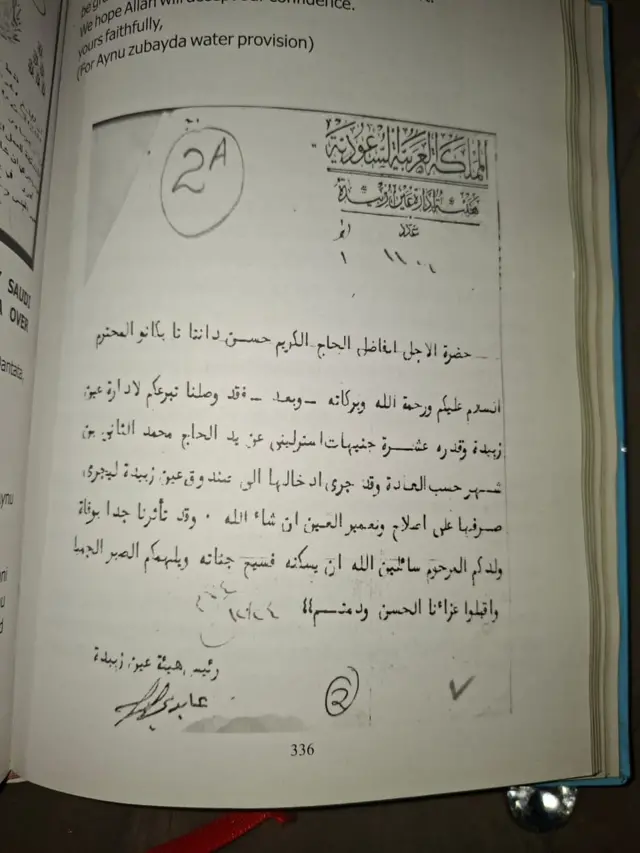 We hope Allah will accept our confidence.
yours faithfully,
(For Aynu zubayda water provision)
2A
المملكة العربية السعودية
هيئة إدارة عين زبيدة
عدد
SAUDI
OVER
Dantata,
حضرة الاجل الفاضل الحاج الكريم حسن دانتا تا بكانو المحترم
السلام عليكم ورحمة الله وبركاته - وبعد - فقد وصلنا تبرعكم لادارة عين
زبيدة وقدره عشرة جنيهات استرلينى عن يد الحاج محمد الثانى بن
شهر حسب العادة وقد جرى ادخالها الى صندوق عين زبيدة ليجرى
صرفها على اصلاح وتعمير العين ان شاء الله ٠ وقد تأثرنا جدا بوفاة
ولدكم المرحوم سائلين الله ان يسكنه فسيح جناته ويلهمكم الصبر الجميل
واقبلوا عزائنا الحسن ودمتم
رئيس هيئة عين زبيدة
2
336